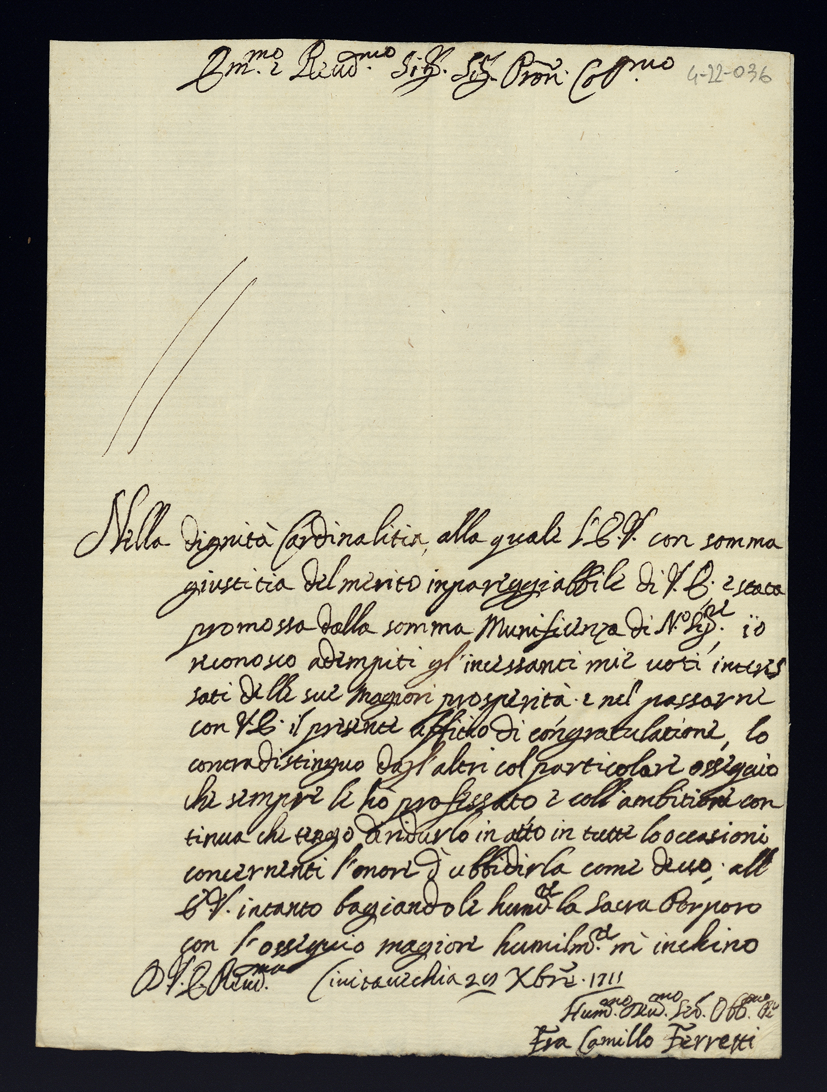 Em.mo e Reud.mo Sig.r Sig.r Pron. Col.mo 4-22-036
Nella dignità Cardinalitia, alla quale l'E.V. con somma
giustitia del merito inpareggiabbile di V.E. è stata
promossa dalla somma Munificenza di N.ro Sig.re io
riconosco adempiti gl'incessanti mie uoti interes
sati delle sue magiori prosperità. e nel passarne
con V.E. il presente affitio di congratulatione, lo
contradistinguo dagl'altri col particolare osseguio
che sempre le hò professato e coll'ambitione con
tinua che tengo di ridurlo in atto in tutte lo occasioni
concernenti l'onore d'ubbidirla come deuo. all'
E.V. intanto bagiandole hum.te la Sacra Porporo
con l'osseguio magiore humilm.te m'inchino
D V.E. Reud.ma Ciuitauechia 29 Xbre. 1711
Hum.mo Deu.mo Ser. Obb.mo
Fra Camillo Ferretti